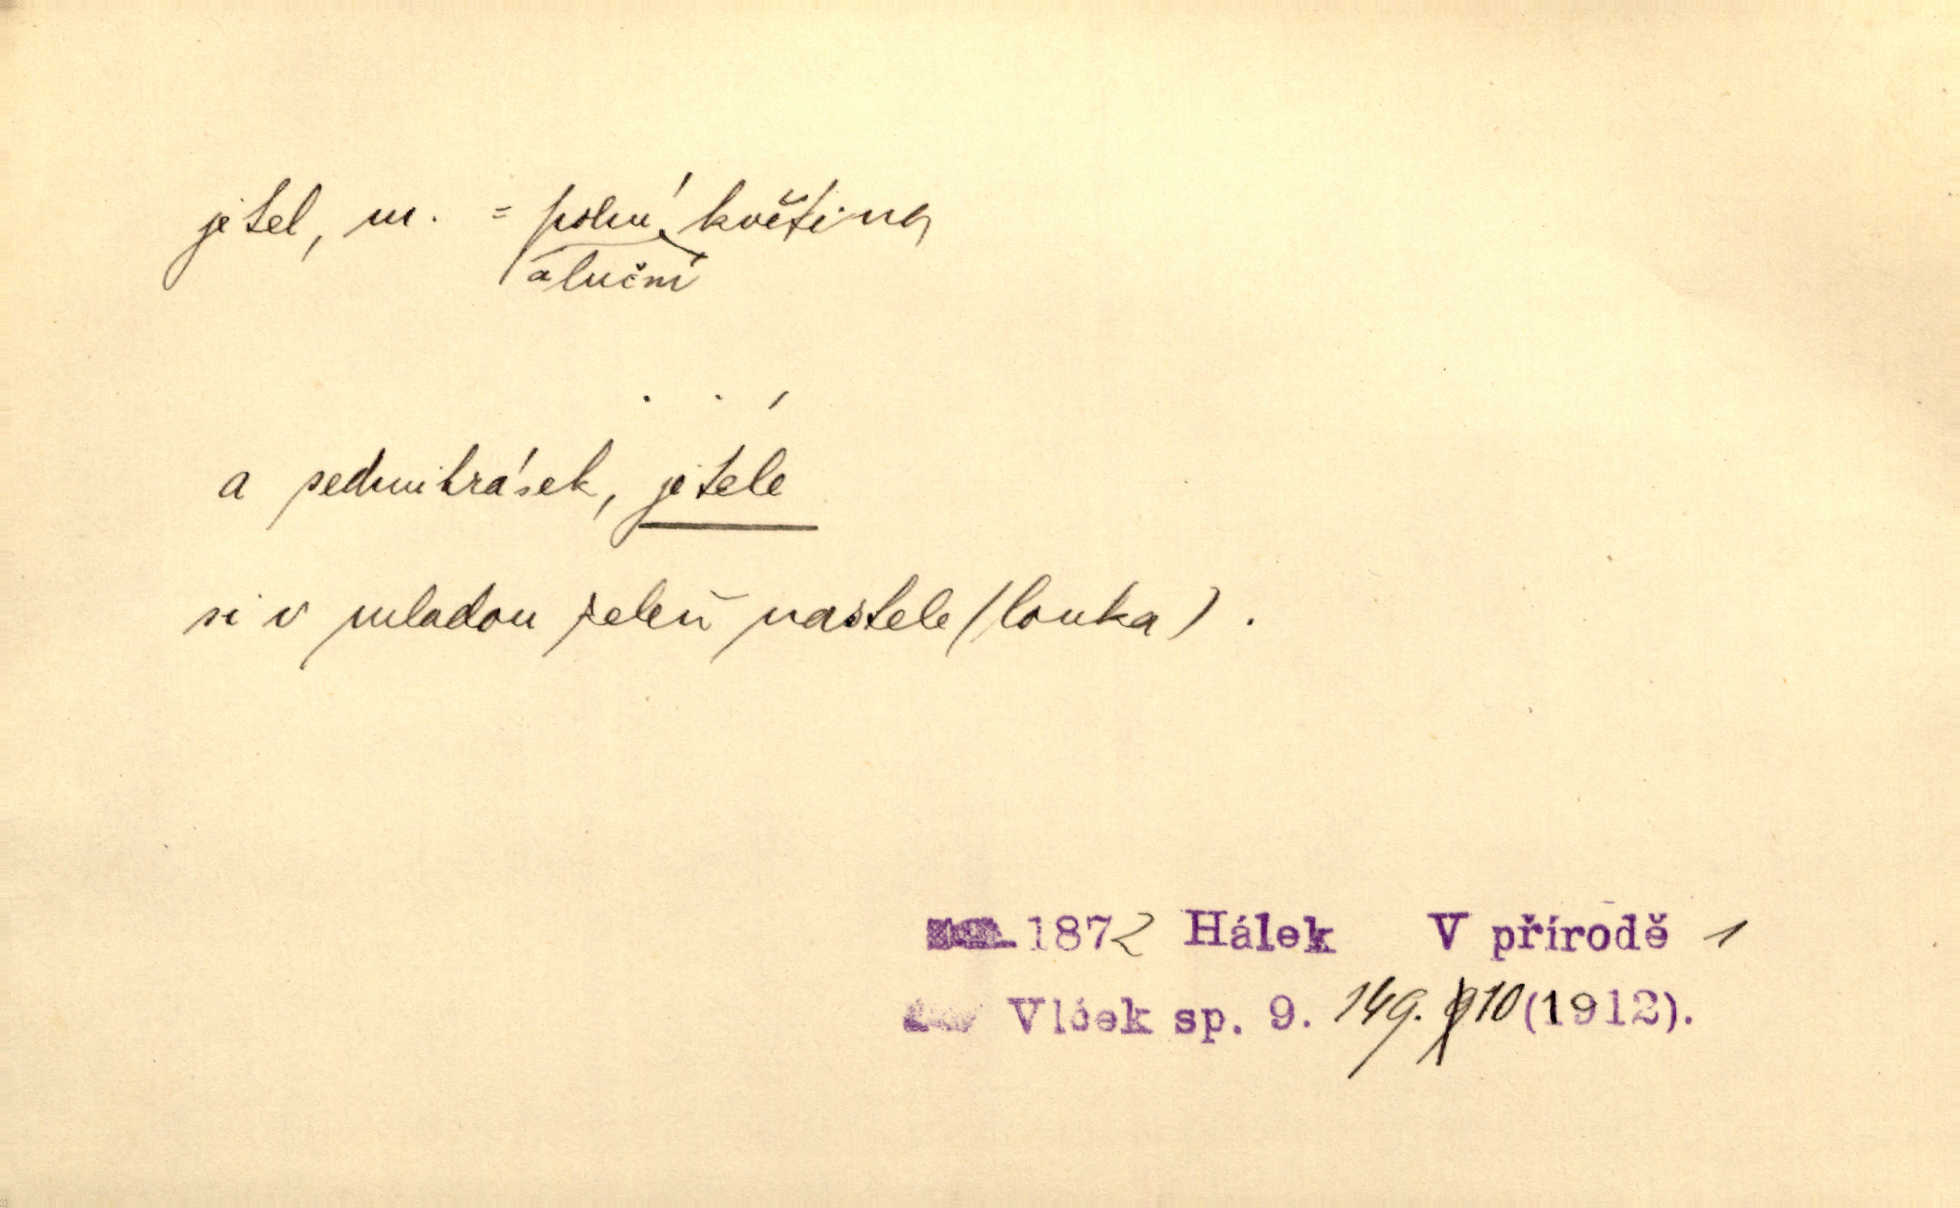 jetel, m. = polní květina
a luční
a sedmikrásek, jetele
si v mladou zeleň nastele (louka).
1872 Hálek V přírodě 1
Vlček sp. 9. 149. 10 (1912).